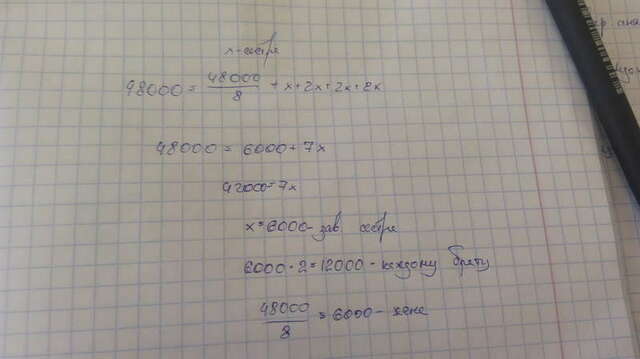 x - сестре
48000 = 48000/8 + x + 2x + 2x + 2x
48000 = 6000 + 7x
42000 = 7x
x = 6000 - зав сестре
6000 · 2 = 12000 - каждому брату
48000/8 = 6000 - жене